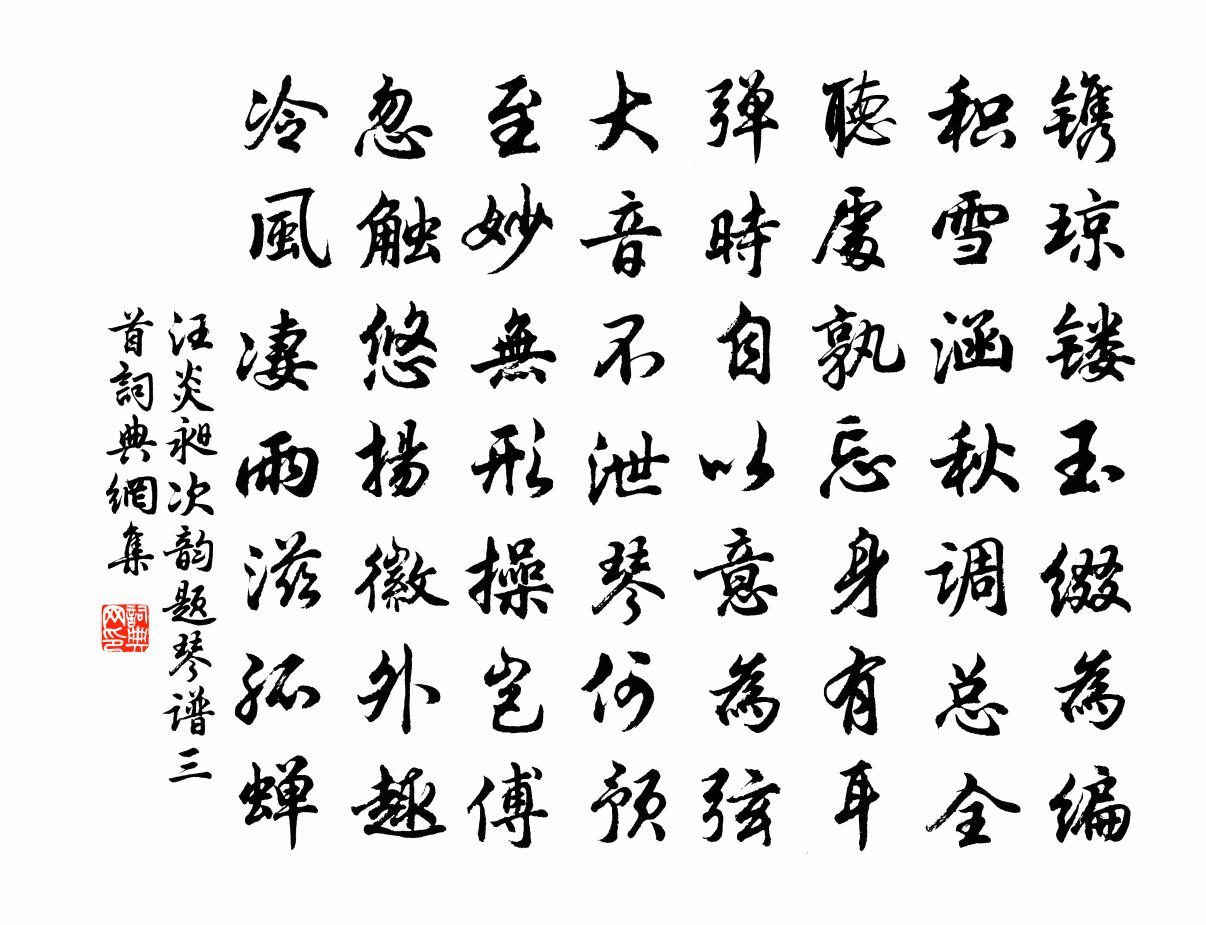 镌琼镂玉缀為编
积雪涵秋调总全
聽處孰忘身有耳
弹時自以意為弦
大音不泄琴何预
至妙無形操岂傅
忽触悠揚徽外趣
冷風凄雨滋孤蝉
汪炎昶次韵题琴谱三
首詞典網集
詞典网印